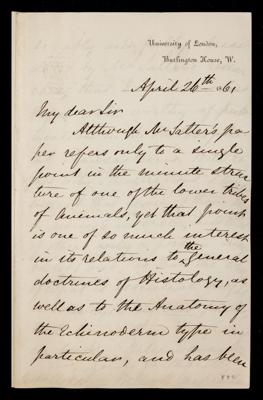 University of London,
Burlington House, W.
April 26th /61
My dear Sir
Although Mr Salter's pa-
per refers only to a single
point in the minute struc-
ture of one of the lower tribes
of Animals, yet that point
is one of so much interest
in its relations to the general
doctrines of Histology, as
well as to the Anatomy of
the Echinoderm type in
particular, and has been